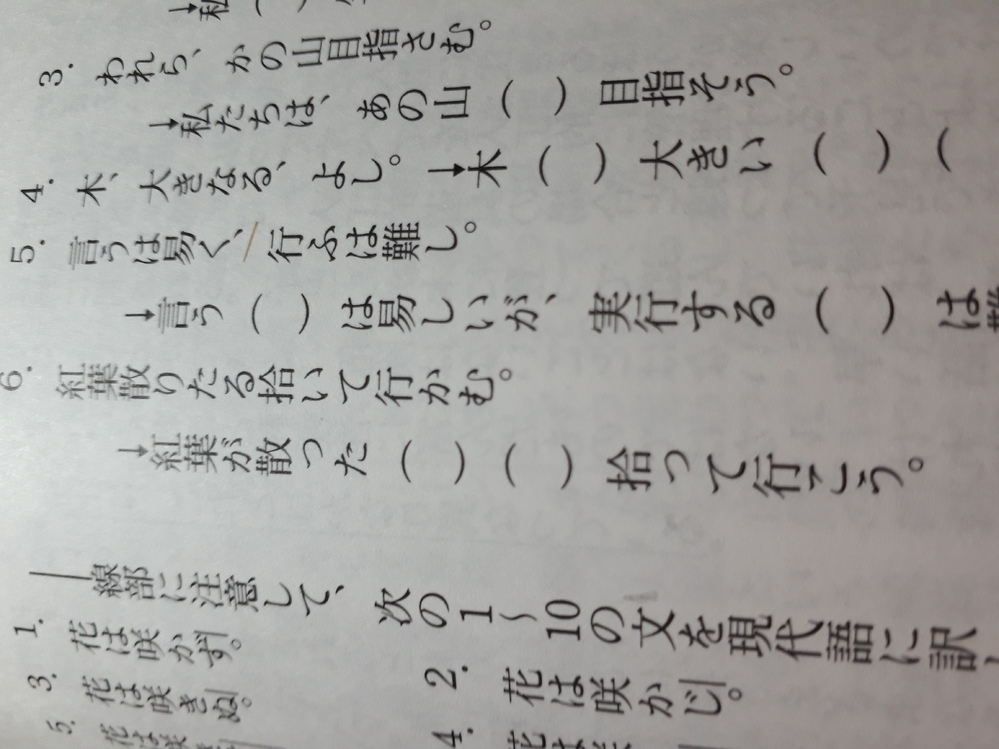 →私
3. われら、かの山目指さむ。
→私たちは、あの山（　）目指そう。
4. 木、大きなる、よし。→木（　）大きい（　）（
5. 言うは易く、行ふは難し。
→言う（　）は易しいが、実行する（　）は難
6. 紅葉散りたる拾いて行かむ。
→紅葉が散った（　）（　）拾って行こう。
線部に注意して、次の1～10の文を現代語に訳
1. 花は咲かず。
2. 花は咲かじ。
3. 花は咲きぬ。
4.
5. 花は咲き